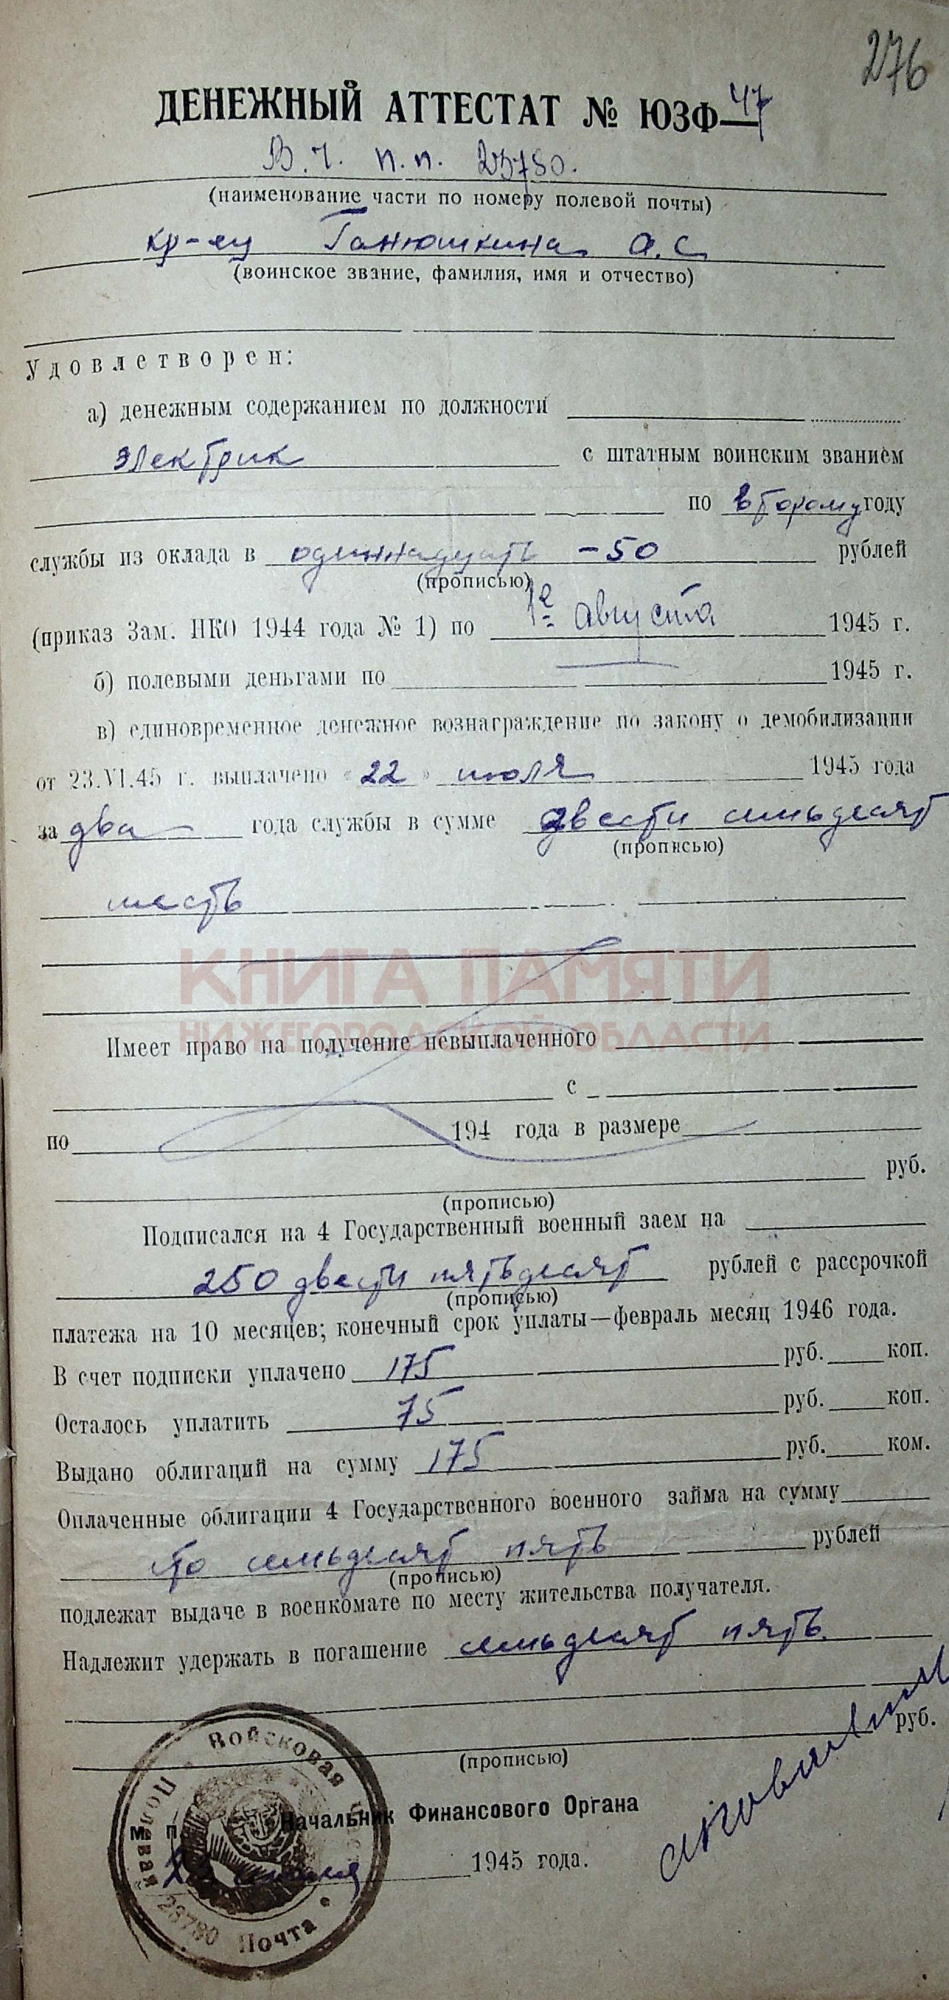 276
ДЕНЕЖНЫЙ АТТЕСТАТ № ЮЗФ—47
В.Ч. п.п. 23780.
(наименование части по номеру полевой почты)
кр-ец Ганюшкина А.С
(воинское звание, фамилия, имя и отчество)
Удовлетворен:
а) денежным содержанием по должности
электрик с штатным воинским званием
по второму году
службы из оклада в одиннадцать -50 рублей
(прописью)
(приказ Зам. НКО 1944 года № 1) по 1е августа 1945 г.
б) полевыми деньгами по 1945 г.
в) единовременное денежное вознаграждение по закону о демобилизации
от 23.VI.45 г. выплачено «22» июля 1945 года
за два года службы в сумме двести семьдесят
(прописью)
шесть
КНИГА ПАМЯТИ
НИЖЕГОРОДСКОЙ ОБЛАСТИ
Имеет право на получение невыплаченного
с
по 194 года в размере
руб.
(прописью)
Подписался на 4 Государственный военный заем на
250 двести пятьдесят рублей с рассрочкой
(прописью)
платежа на 10 месяцев; конечный срок уплаты—февраль месяц 1946 года.
В счет подписки уплачено 175 руб. коп.
Осталось уплатить 75 руб. коп.
Выдано облигаций на сумму 175 руб. ком.
Оплаченные облигации 4 Государственного военного займа на сумму
сто семьдесят пять рублей
(прописью)
подлежат выдаче в военкомате по месту жительства получателя.
Надлежит удержать в погашение семьдесят пять
руб.
(прописью)
Начальник Финансового Органа
м п
1945 года.
Войсковая Часть Полевая Почта 23780